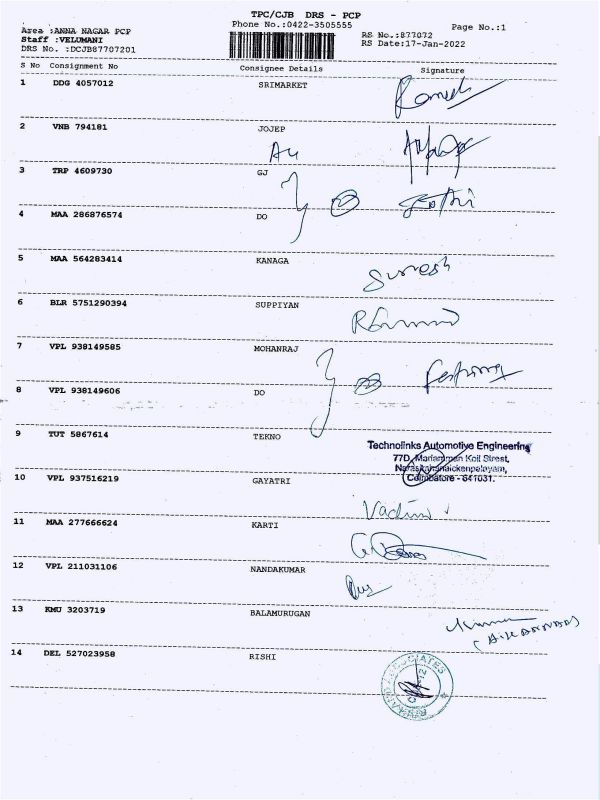 TPC/CJB DRS - PCP
Phone No.:0422-3505555
Page No.:1
Area :ANNA NAGAR PCP
Staff :VELUMANI
DRS No. :DCJB87707201
RS No.:877072
RS Date:17-Jan-2022
S No Consignment No Consignee Details Signature
1 DDG 4057012 SRIMARKET
2 VNB 794181 JOJEP
3 TRP 4609730 GJ
4 MAA 286876574 DO
5 MAA 564283414 KANAGA
Suresh
6 BLR 5751290394 SUPPIYAN
7 VPL 938149585 MOHANRAJ
8 VPL 938149606 DO
9 TUT 5867614 TEKNO
Technolinks Automotive Engineering
77D, Mariamman Koil Street,
Coimbatore - 641031.
10 VPL 937516219 GAYATRI
11 MAA 277666624 KARTI
12 VPL 211031106 NANDAKUMAR
13 KMU 3203719 BALAMURUGAN
14 DEL 527023958 RISHI